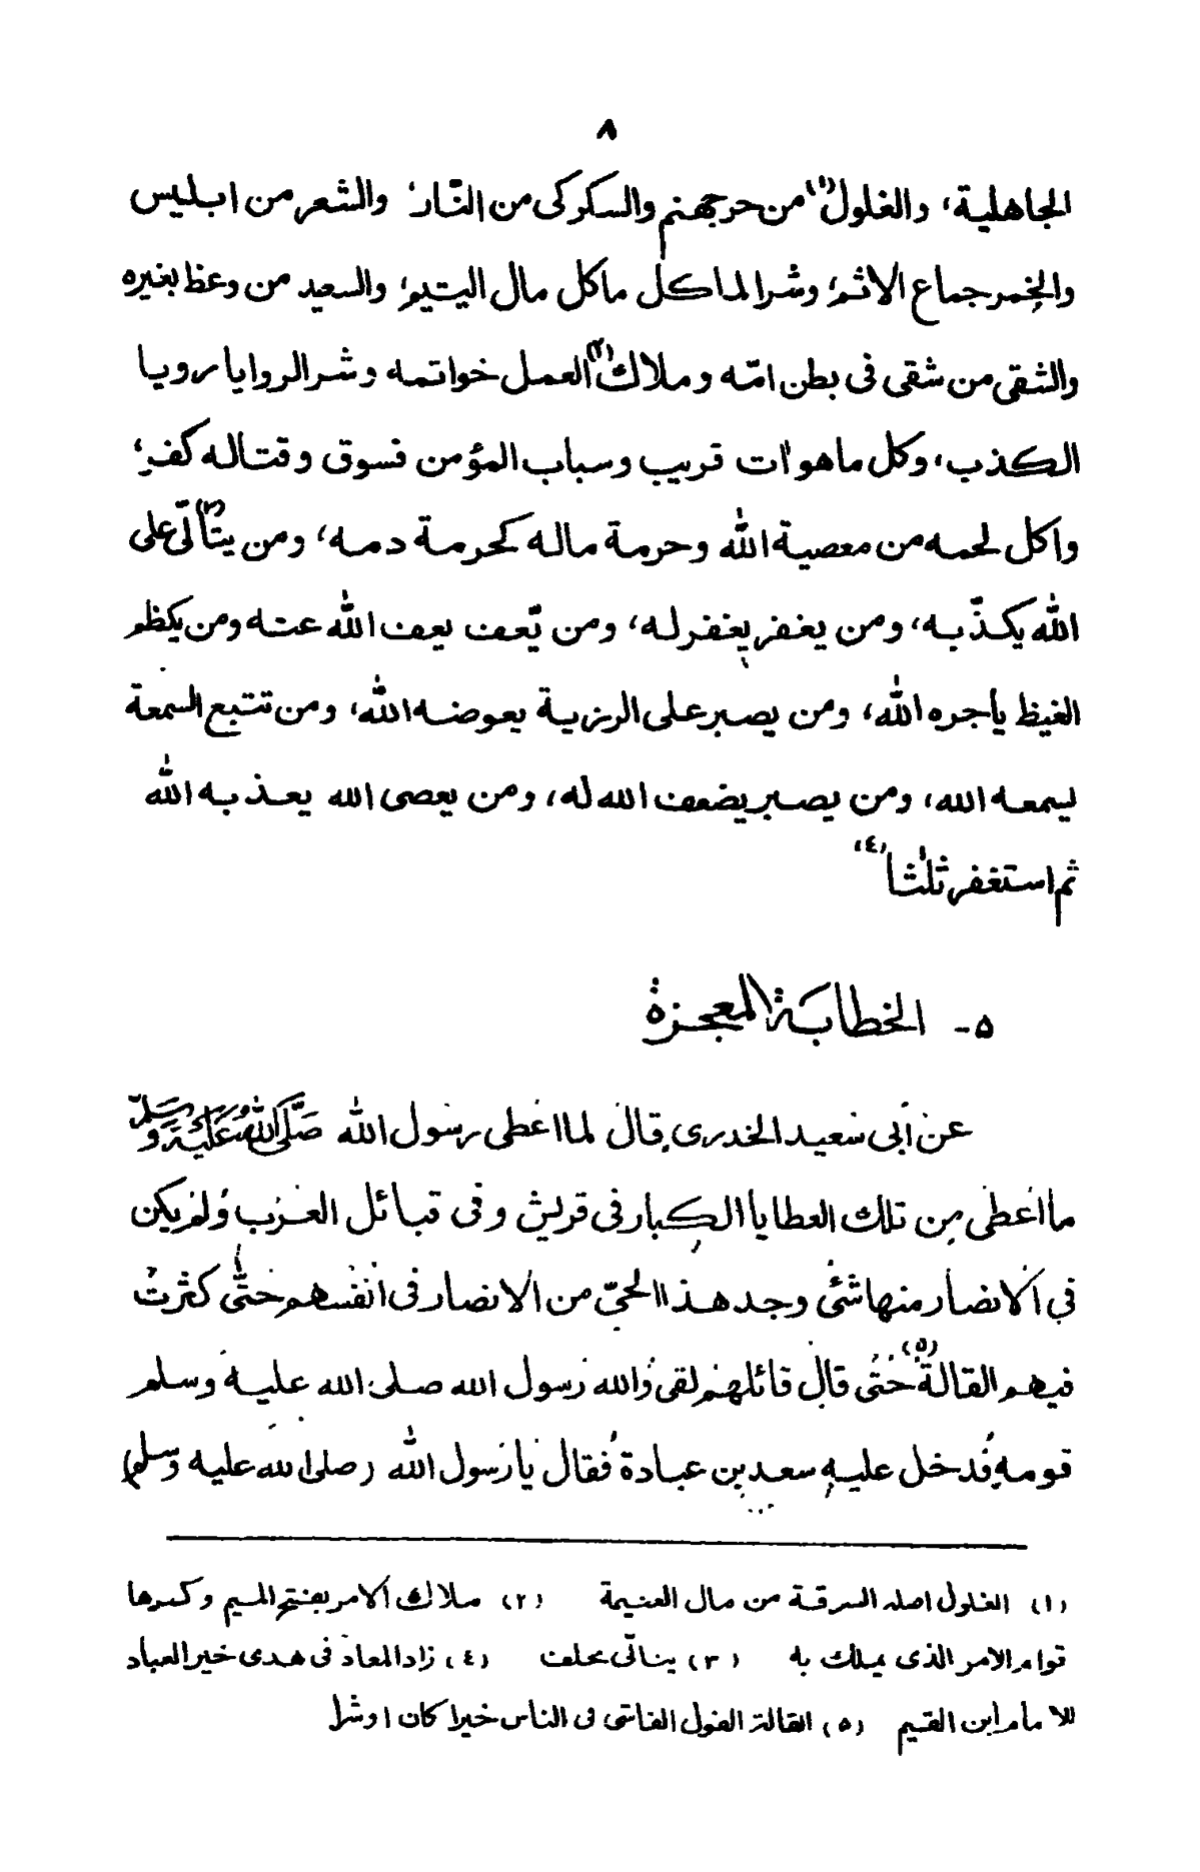 ٨
الجاهلية، والغلول(١) من حرجهنم والسكركى من النّار، والشعر من ابليس
والخمر جماع الاثم، وشر الماكل ماكل مال اليتيم، والسعيد من وعظ بغيره
والشقى من شقى فى بطن امّه وملاك(٢) العمل خواتمه وشر الروايا رويا
الكذب، وكل ما هو اٰت قريب وسباب المؤمن فسوق وقتاله كفر،
واكل لحمه من معصية اللّٰه وحرمة ماله كحرمة دمه، ومن يتألّى(٣) على
اللّٰه يكذّبه، ومن يغفر يغفر له، ومن يّعف يعف اللّٰه عنه ومن يكظم
الغيظ يأجره اللّٰه، ومن يصبر على الرزية يعوضه اللّٰه، ومن تتبع السمعة
يسمعه الله، ومن يصبر يضعف الله له، ومن يعصى الله يعذبه اللّٰه
ثم استغفر ثلٰثا(٤)
۵- الخطابة المعجزة
عن أبى سعيد الخدرى قال لما اعطى رسول اللّٰه صَلَّى اللّٰهُ عَلَيْهِ وَسَلَّمَ
ما اعطى من تلك العطايا الكبار فى قريش وفى قبائل العرب ولم يكن
فى الانصار منها شئ وجد هذا الحىّ من الانصار فى انفسهم حتّٰى كثرت
فيهم القالة(۵) حتى قال قائلهم لقى والله رسول الله صلى الله عليه وسلم
قومه فدخل عليه سعد بن عبادة فقال يا رسول اللّٰه (صلى الله عليه وسلم)
(١) الغلول اصله السرقة من مال الغنيمة (٢) ملاك الامر بفتح الميم وكسرها
قوام الامر الذى يملك به (٣) يتالّى يحلف (٤) زاد المعاد فى هدى خير العباد
للامام ابن القيم (۵) القالة القول الفاشى فى الناس خيرا كان اوشرا